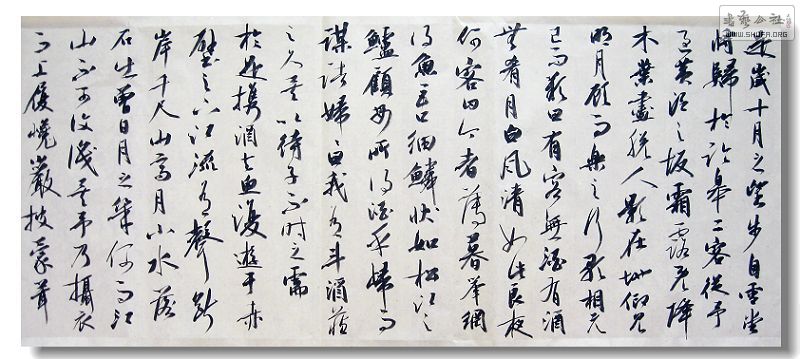 是歲十月之望步自雪堂
將歸於臨皋二客從予
過黃泥之坂霜露既降
木葉盡脫人影在地仰見
明月顧而樂之行歌相答
已而歎曰有客無酒有酒
無肴月白風清如此良夜
何客曰今者薄暮舉網
得魚巨口細鱗狀如松江之
鱸顧安所得酒乎歸而
謀諸婦曰我有斗酒藏
之久矣以待子不時之需
於是攜酒與魚復遊于赤
壁之下江流有聲斷
岸千尺山高月小水落
石出曾日月之幾何而江
山不可復識矣予乃攝衣
而上履巉巖披蒙茸
書藝公社
WWW.SHUFA.ORG